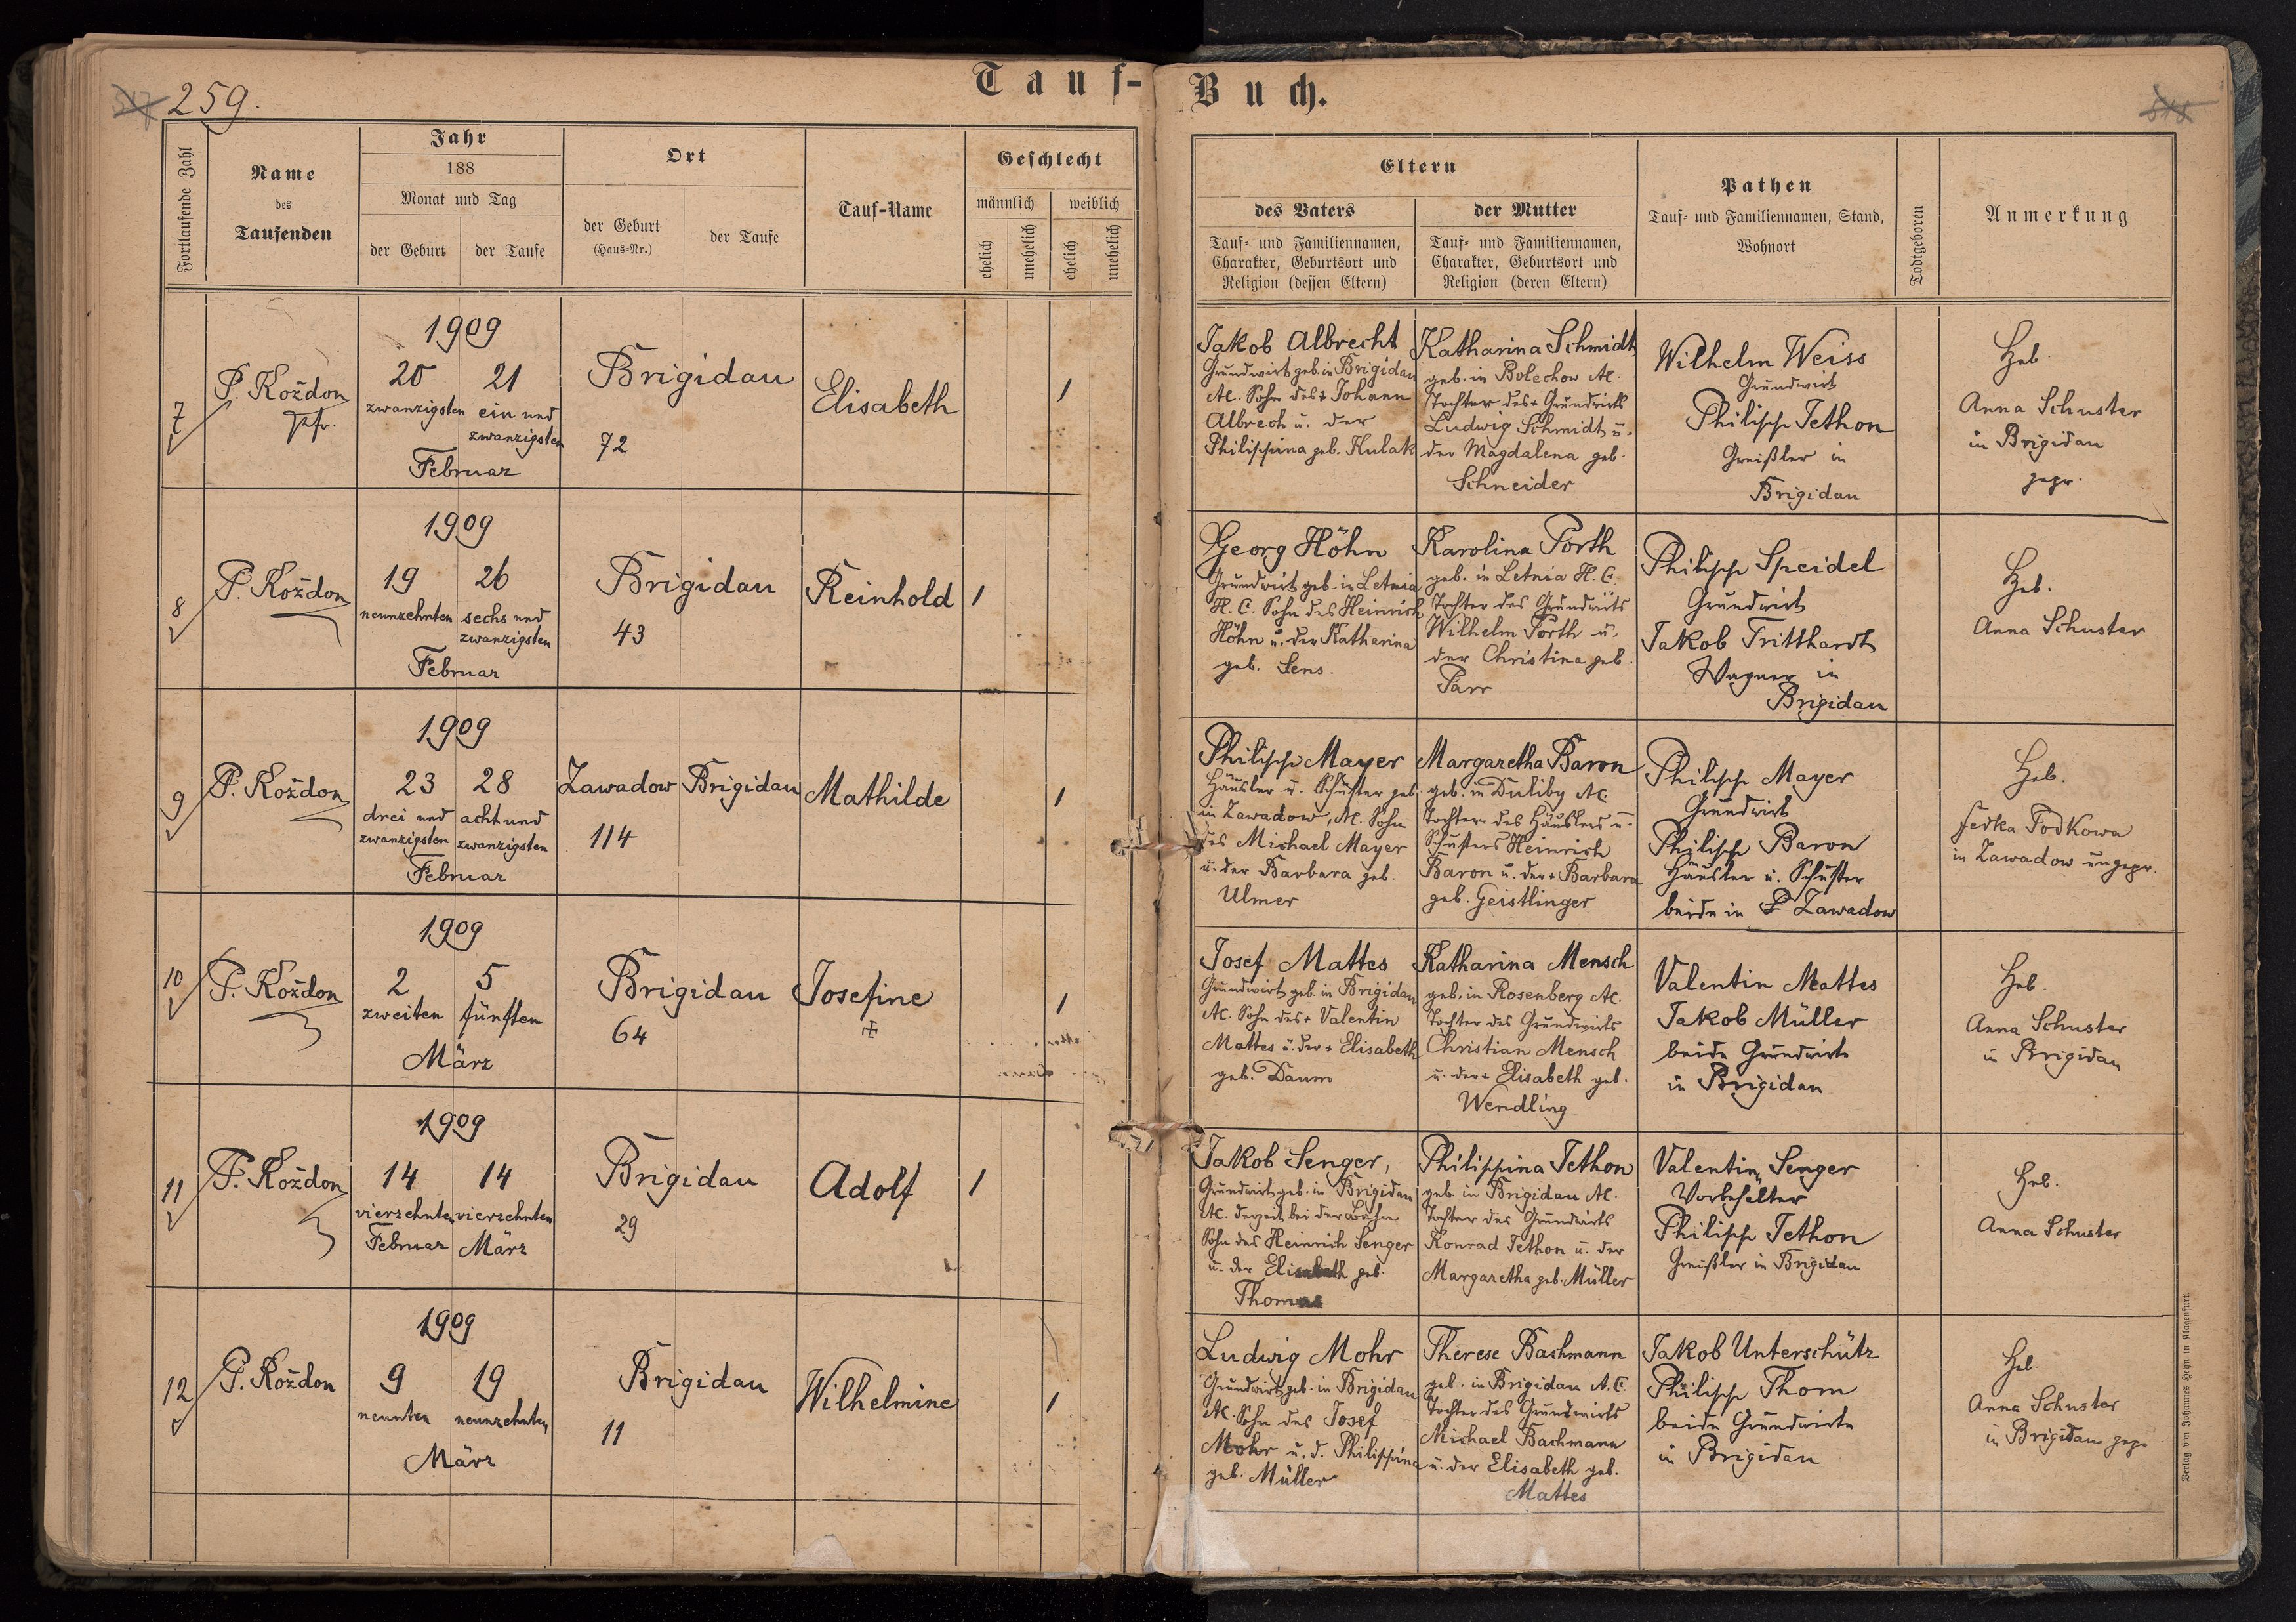 Tauf-Buch.
259.
Fortlaufende Zahl
Name
des
Taufenden
Jahr
188
Monat und Tag
der Geburt
der Taufe
Ort
der Geburt
(Haus-Nr.)
der Taufe
Tauf-Name
Geschlecht
männlich
weiblich
ehelich
unehelich
ehelich
unehelich
Eltern
des Vaters
Tauf- und Familiennamen,
Charakter, Geburtsort und
Religion (dessen Eltern)
der Mutter
Tauf- und Familiennamen,
Charakter, Geburtsort und
Religion (deren Eltern)
Pathen
Tauf- und Familiennamen, Stand,
Wohnort
Todtgeboren
Anmerkung
7
P. Koždon
Pfr.
1909
20
zwanzigsten
21
ein und
zwanzigsten
Februar
Brigidau
72
Elisabeth
1
Jakob Albrecht
Grundwirt geb. in Brigidau
AC. Sohn des + Johann
Albrech u. der
Philippina geb. Kulak
Katharina Schmidt
geb. in Bolechow AC.
Tochter des + Grundwirts
Ludwig Schmidt u.
der Magdalena geb.
Schneider
Wilhelm Weiss
Grundwirt
Philipp Tethon
Greißler in
Brigidau
Heb.
Anna Schuster
in Brigidau
gepr.
8
P. Koždon
1909
19
neunzehnten
26
sechs und
zwanzigsten
Februar
Brigidau
43
Reinhold
1
Georg Höhn
Grundwirt geb. in Letnia
H. C. Sohn des Heinrich
Höhn u. der Katharina
geb. Sens.
Karolina Porth
geb. in Letnia H. C.
Tochter des Grundwirts
Wilhelm Porth u.
der Christina geb.
Parr
Philipp Speidel
Grundwirt
Jakob Tritthardt
Wagner in
Brigidau
Heb.
Anna Schuster
9
P. Koždon
1909
23
drei und
zwanzigsten
28
acht und
zwanzigsten
Februar
Zawadow
114
Brigidau
Mathilde
1
Philipp Mayer
Häusler u. Schuster geb.
in Zawadow, AC. Sohn
des Michael Mayer
u. der Barbara geb.
Ulmer
Margaretha Baron
geb. in Duliby AC.
Tochter des Häuslers u.
Schusters Heinrich
Baron u. der + Barbara
geb. Geistlinger
Philipp Mayer
Grundwirt
Philipp Baron
Häusler u. Schuster
beide in Zawadow
Heb.
Fedka Todkowa
in Zawadow ungepr.
10
P. Koždon
1909
2
zweiten
5
fünften
März
Brigidau
64
Josefine
1
Josef Mattes
Grundwirt geb. in Brigidau
AC. Sohn des + Valentin
Mattes u. der + Elisabeth
geb. Daum
Katharina Mensch
geb. in Rosenberg AC.
Tochter des Grundwirts
Christian Mensch
u. der + Elisabeth geb.
Wendling
Valentin Mattes
Jakob Müller
beide Grundwirte
in Brigidau
Heb.
Anna Schuster
in Brigidau
11
P. Koždon
1909
14
vierzehnten
Februar
14
vierzehnten
März
Brigidau
29
Adolf
1
Jakob Senger,
Grundwirt geb. in Brigidau
AC. derzeit bei der Bahn
Sohn des Heinrich Senger
u. der Elisabeth geb.
Thomas
Philippina Tethon
geb. in Brigidau AC.
Tochter des Grundwirts
Konrad Tethon u. der
Margaretha geb. Müller
Valentin Senger
Vorbehalter
Philipp Tethon
Greißler in Brigidau
Heb.
Anna Schuster
12
P. Koždon
1909
9
neunten
19
neunzehnten
März
Brigidau
11
Wilhelmine
1
Ludwig Mohr
Grundwirt geb. in Brigidau
AC. Sohn des Josef
Mohr u. d. Philippina
geb. Müller
Therese Bachmann
geb. in Brigidau A. C.
Tochter des Grundwirts
Michael Bachmann
u. der Elisabeth geb.
Mattes
Jakob Unterschütz
Philipp Thom
beide Grundwirte
in Brigidau
Heb.
Anna Schuster
in Brigidau gepr.
Verlag von Johannes Heyn in Klagenfurt.